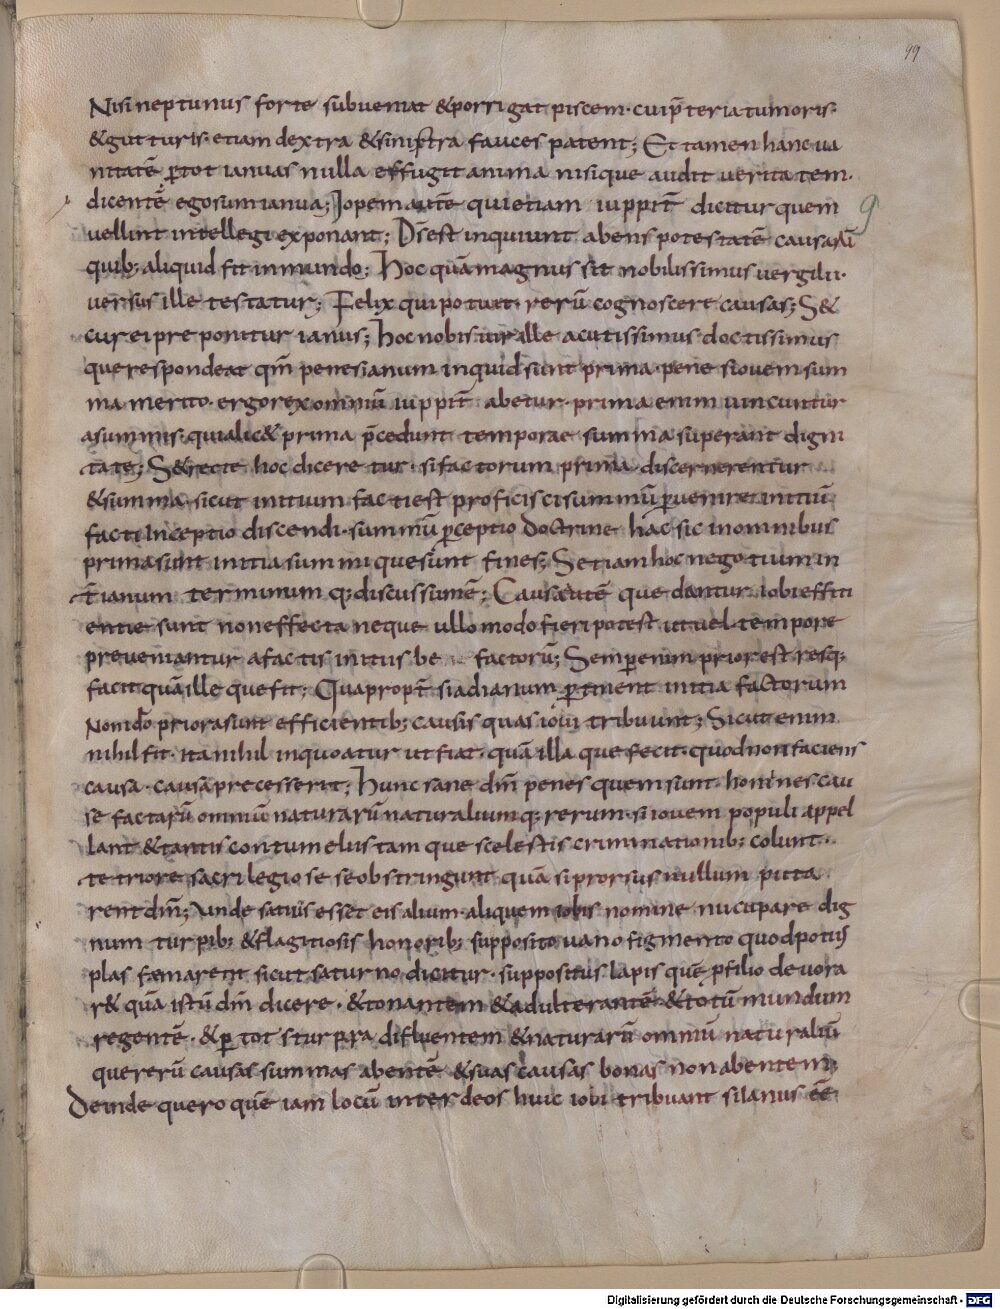 99
Nisi neptunus forte subueniat &porrigat piscem· cui p̄ter ia tumoris·
&gutturis· etiam dextra &sinistra fauces patent; Et tamen hanc ua
nitatē ꝑtot ianuas nulla effugit anima nisi que audit ueritatem·
dicentē ego sum ianua; Iouem autē qui etiam iuppit̄ dicitur quem
9
uellint intellegi exponant; D̄s est inquiunt abens potestatē causarū
quib; aliquid fit in mundo; Hoc quā magnus sit nobilissimus uergilii·
uersus ille testatur; Felix qui potuit· rerū cognoscere causas; S&
cur ei preponitur ianus; hoc nobis uir ille acutissimus doctissimus
que respondeat qm̄ penes ianum inquid sunt prima· pene s iouem sum
ma merito· ergo rex omniū iuppit̄ abetur· prima enim uincuntur
a summis· quia lic& prima p̄cedunt temporae summa superant digni
tate; S& recte hoc diceretur· si factorum prima discernerentur
&summa· sicut initium facti est proficisci summū ꝑuenire· initiū
facti inceptio discendi· summū ꝑceptio doctrine hac sic in omnibus
prima sunt initia summique sunt fines; Set iam hoc negotium in
t̄ ianum terminumq; discussum ē; Causae autē que dantur iobi effiti
entie sunt non effecta neque ullo modo fieri potest ut uel tempore
preueniantur a factis initusbe factorū; Semper enim prior est res q;
facit quā ille que fit; Quapropt̄ si ad ianum ꝑtinent initia factorum
Non ido priora sunt efficientib; causis quas ioui tribuunt; Sicut enim
nihil fit· ita nihil inquoatur ut fiat· quā illa que fecit· quod non faciens
causa· causā precesserit; Hunc sane dm̄ penes quem sunt· homnes cau
se factarū omniū naturarū naturaliumq; rerum· si iouem populi appel
lant &tantis contumeliis tamque scelestis criminationib; colunt·
tetriore sacrilegio se se obstringunt quā si prorsus nullum puta
rent dm̄; Unde satius esset eis alium aliquem iobis nomine nucupare dig
num turpib; &flagitiosis honorib; supposito uano figmento quod potius
plasfamarent sicut saturno dicitur· suppositus lapis quē ꝓ filio deuora
r& quā istū dm̄ dicere· &tonantem &adulterantē &totū mundum
regentē· &ꝑ tot stupra difluentem &naturarū omniū naturaliū
que rerū causas summas abentē &suas causas bonas non abentem;
Deinde quero quē iam locū inter deos huic iobi tribuant si Ianus ēē
Digitalisierung gefördert durch die Deutsche Forschungsgemeinschaft - DFG